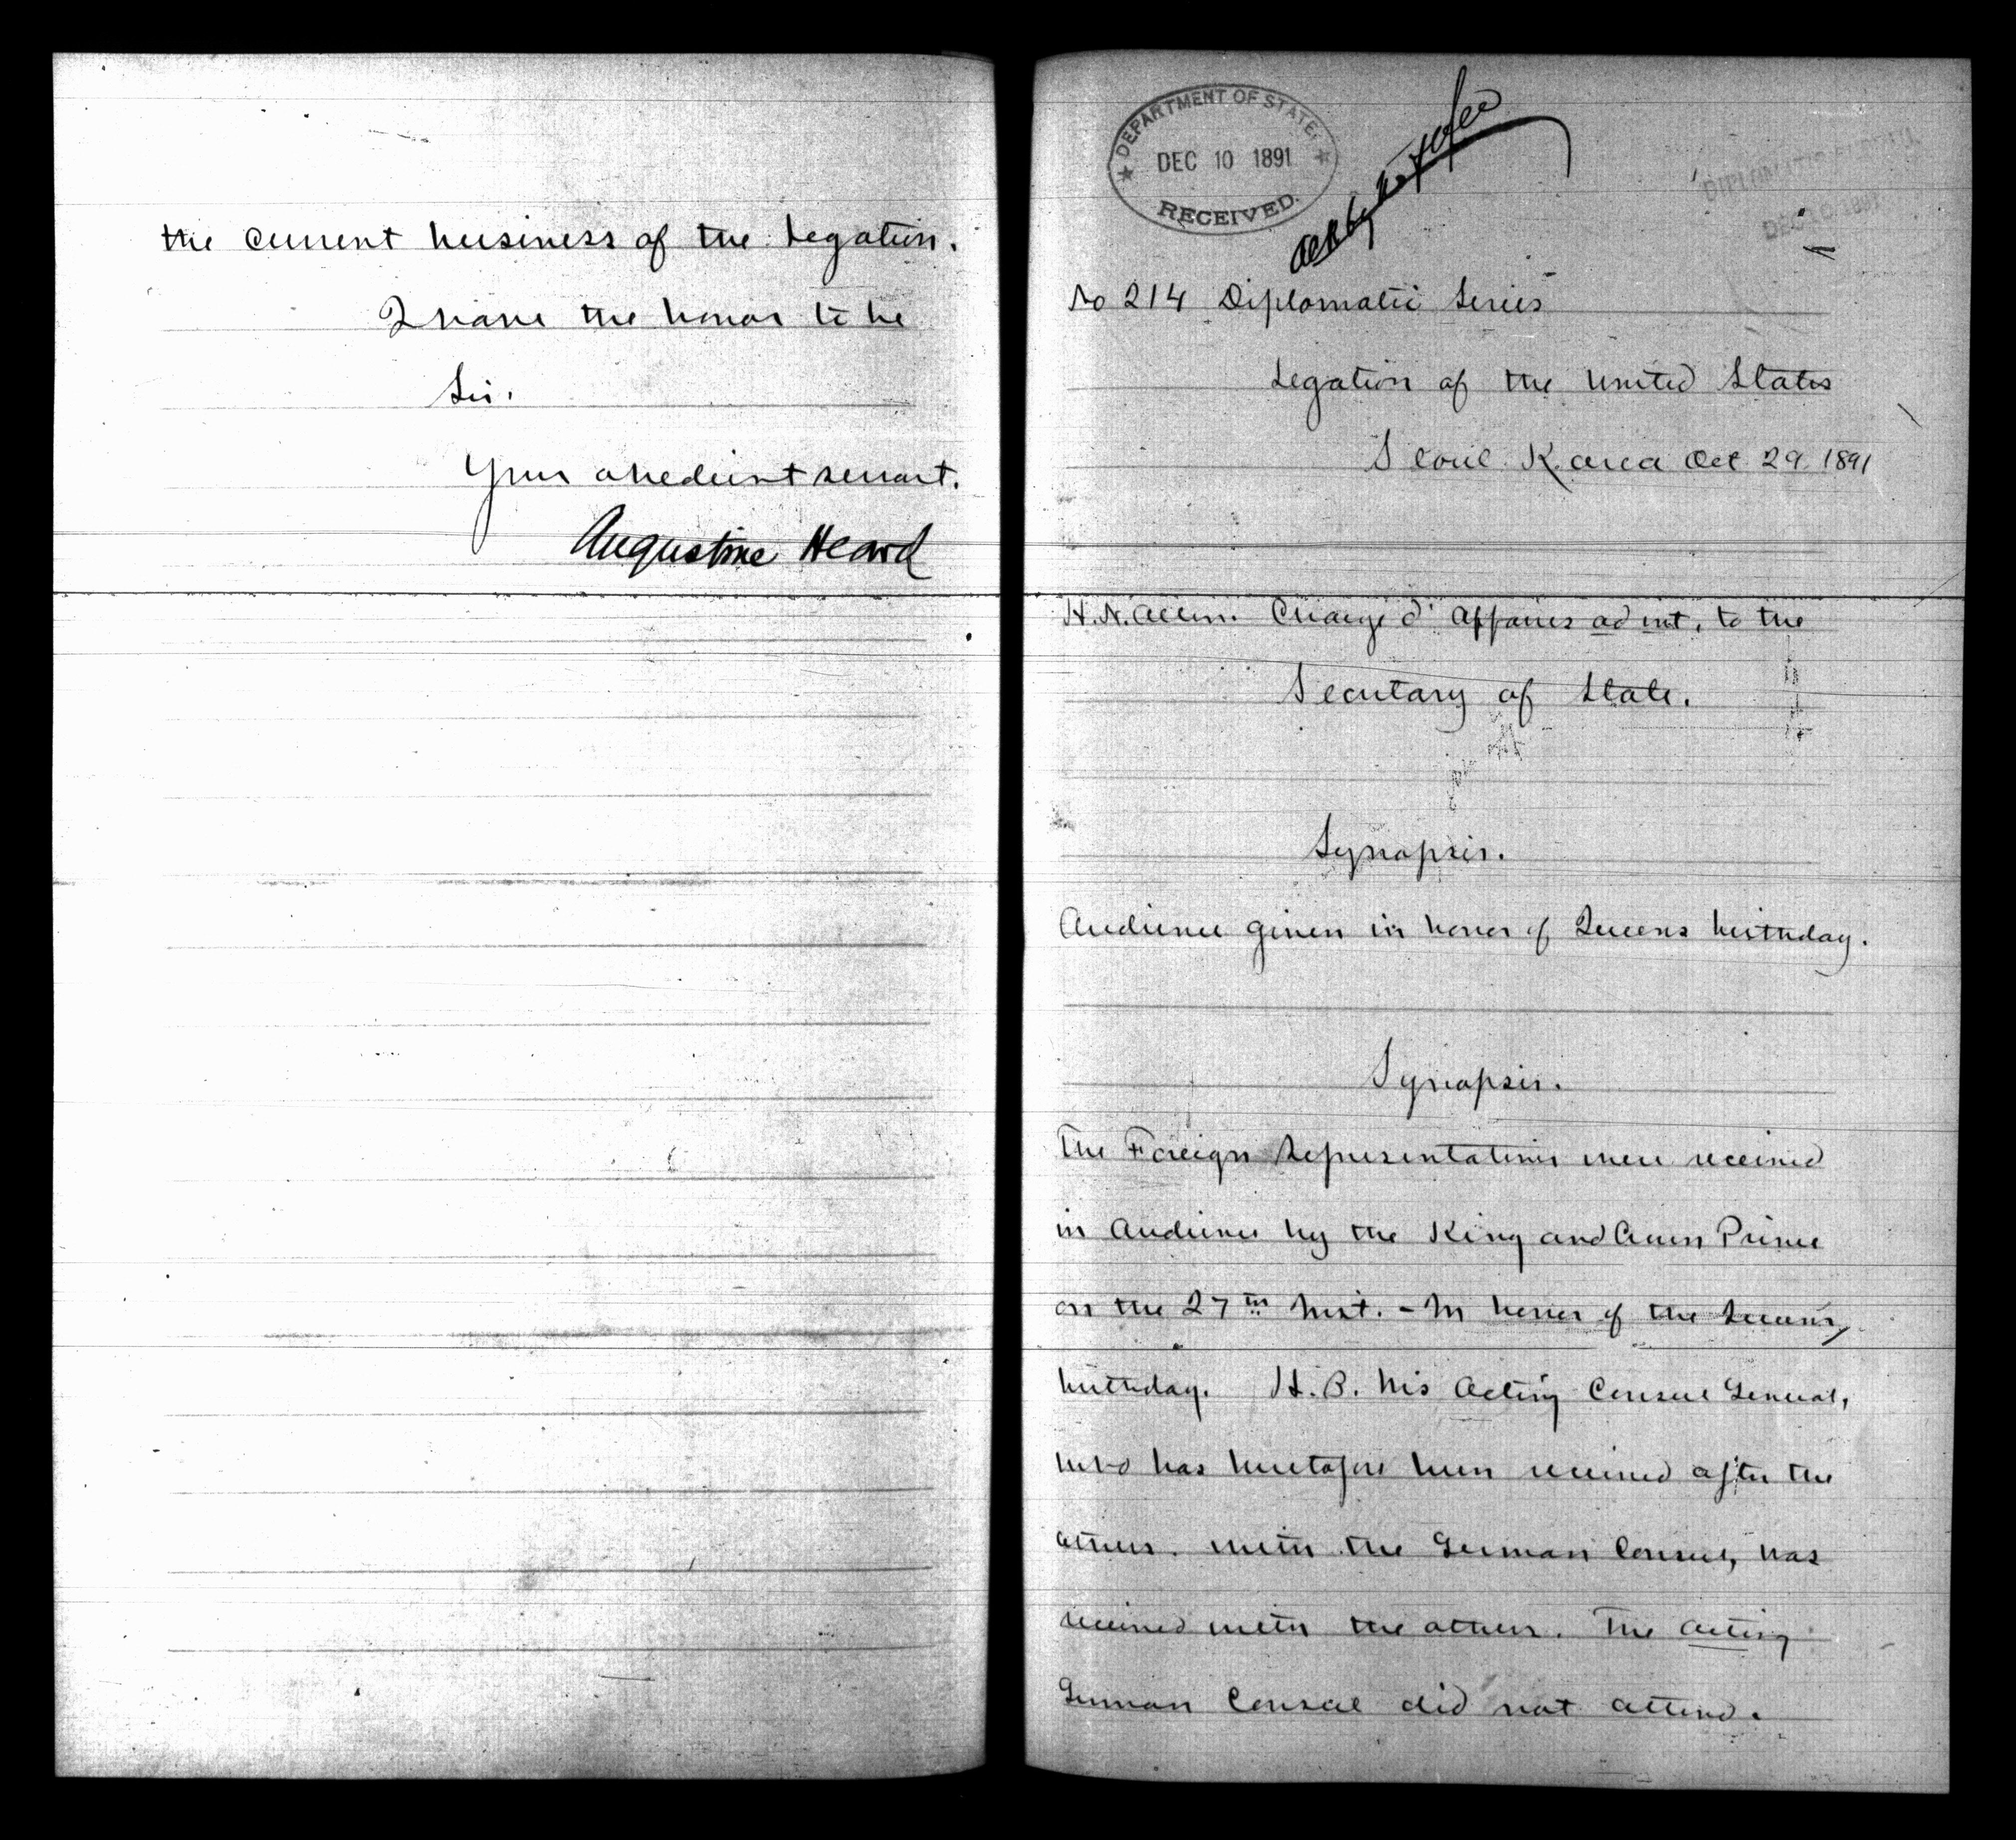 the current business of the Legation.
I have the honor to be
Sir.
Your obedient servant.
Augustine Heard
DEPARTMENT OF STATE.
DEC 10 1891
RECEIVED.
DIPLOMATIC BUREAU
DEC 10 1891
No 214 Diplomatic Series
Legation of the United States
Seoul Korea Oct 29 1891
H. N. Allen. Charge d' Affaires ad int. to the
Secretary of State.
Synopsis.
Audience given in honor of Queens birthday.
Synopsis.
The Foreign Representatives were received
in Audience by the King and Crown Prince
on the 27th Inst. - In honor of the Queens
birthday. H. B. M's Acting Consul General,
who has heretofore been received after the
others. with the German Consul, was
received with the others. The Acting
German Consul did not attend.